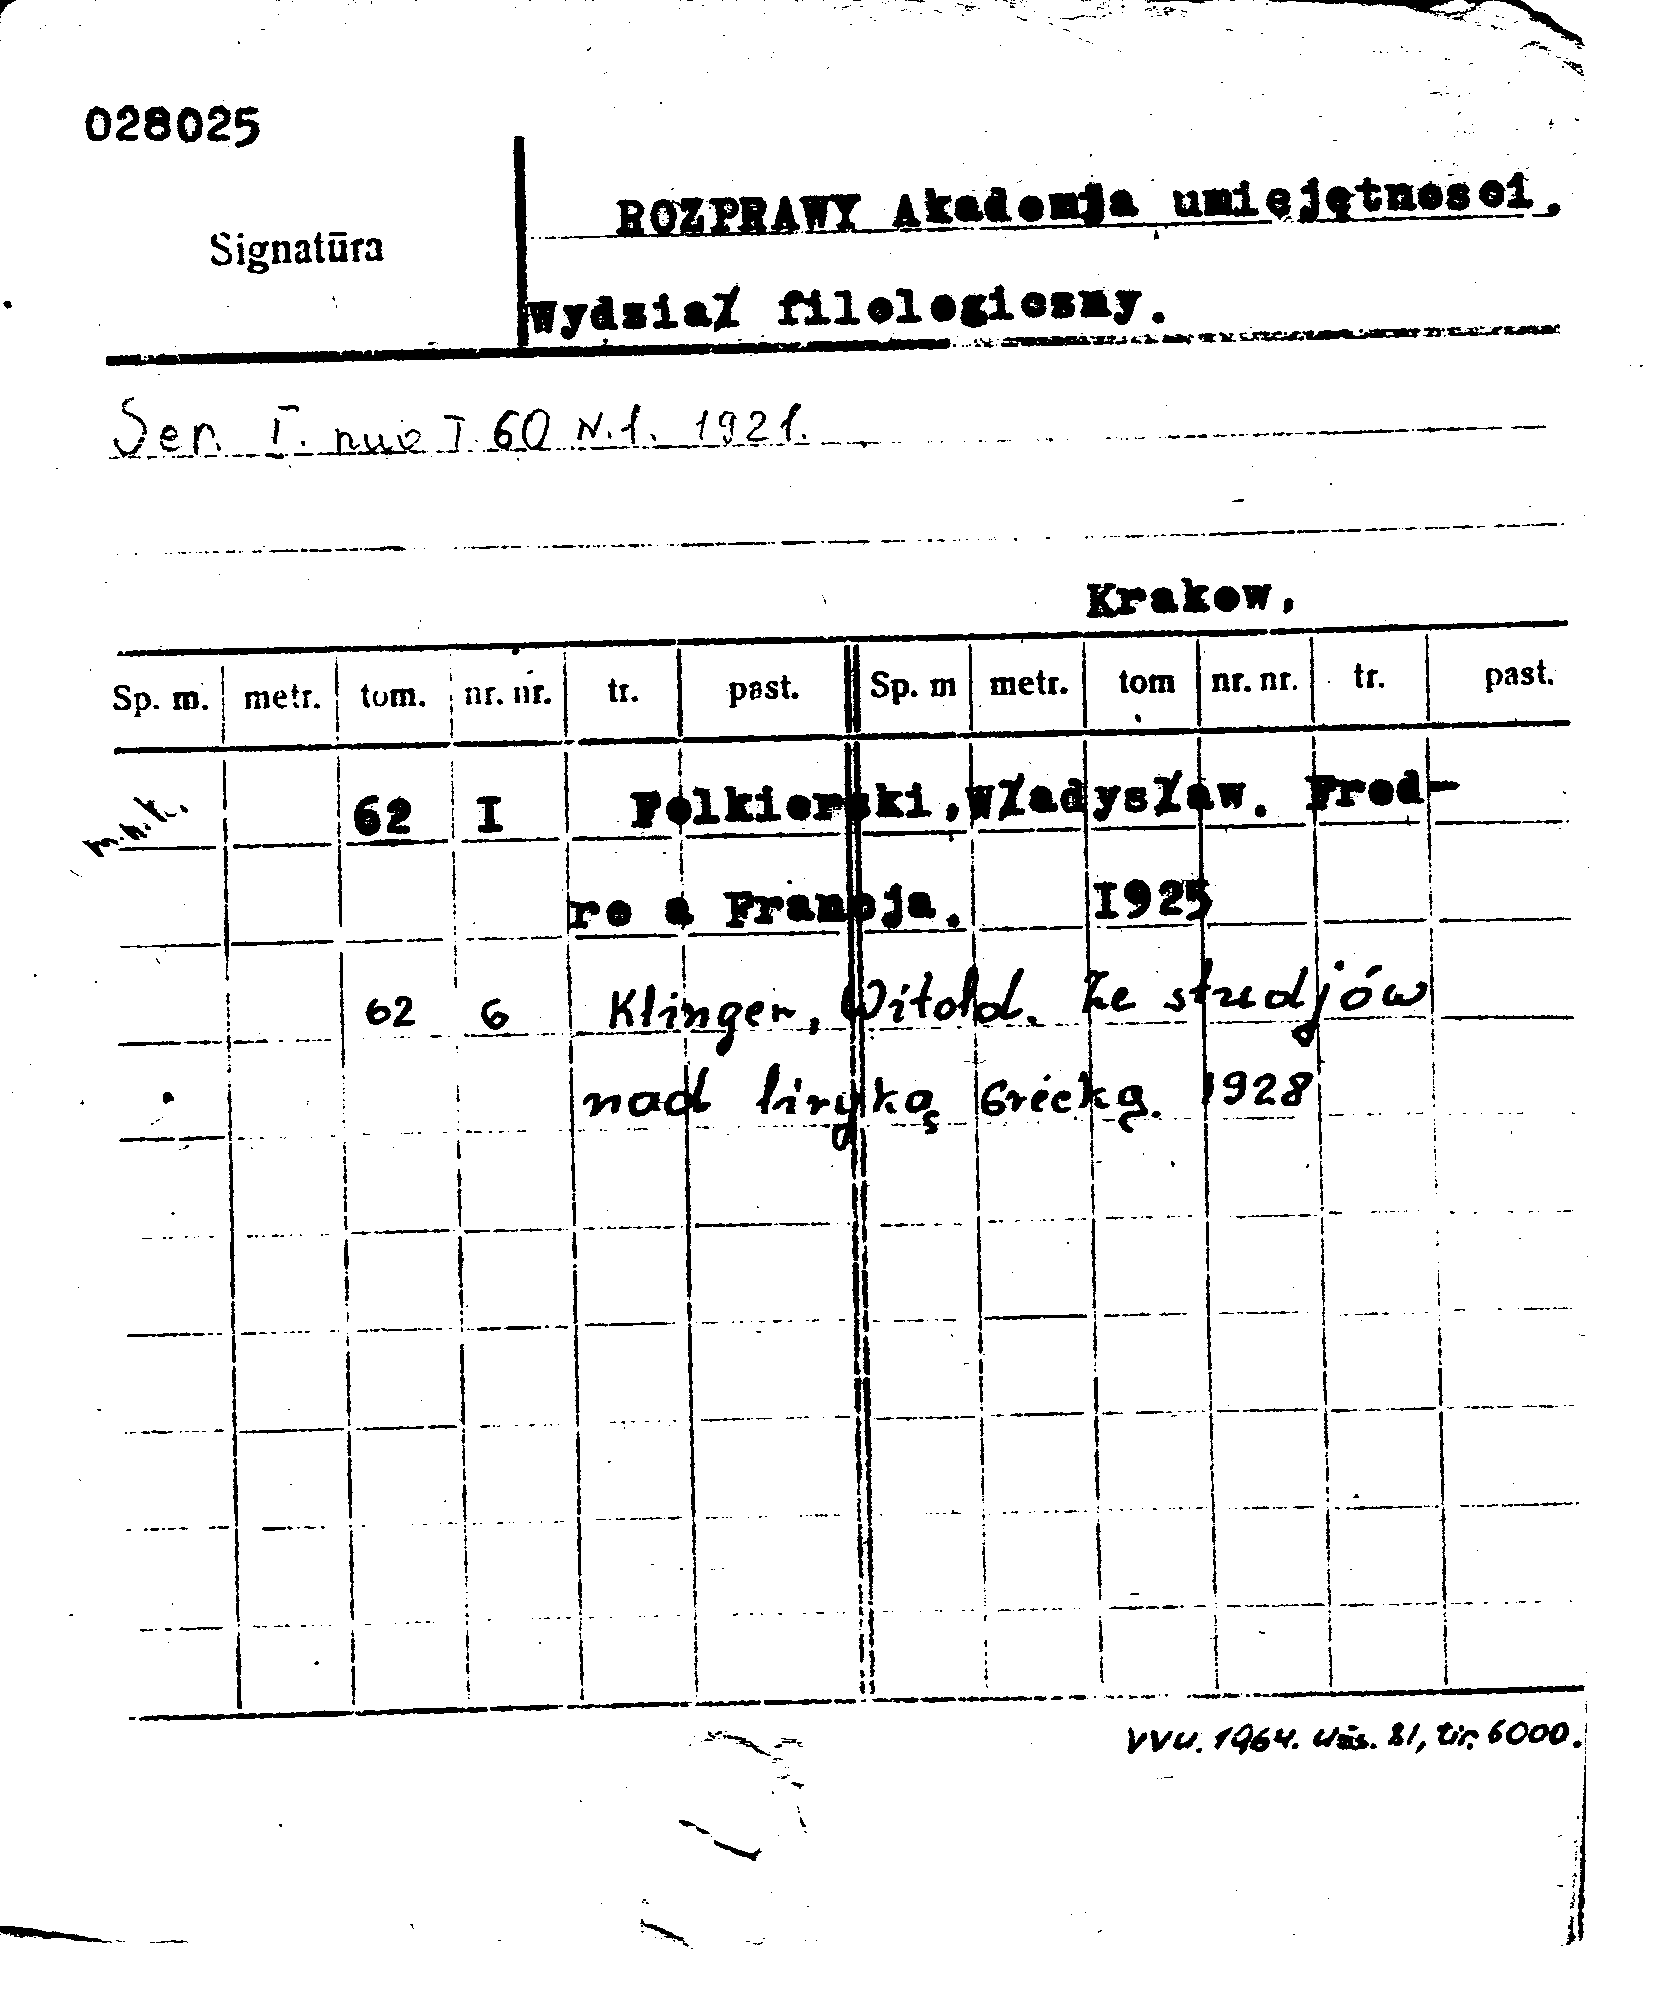 028025
ROZPRAWY Akademja umiejętnosci.
Signatūra
Wydział filologiczny.
Ser. I. nuo T 60 N.1. 1921.
Krakow,
Sp. m. metr. tom. nr. nr. tr. past. Sp. m metr. tom nr. nr. tr. past.
62 I Folkierski,Władysław. Fred-
re a Francja. 1925
62 6 Klinger, Witold. Ze studjów
nad liryką Grecką. 1928
VVU. 1964. Užs. 81, tir. 6000.